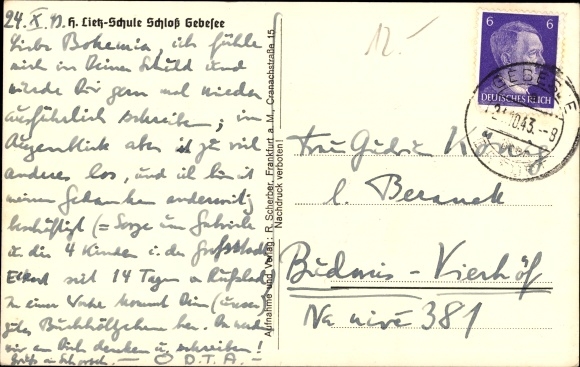 24.X.43. H. Lietz-Schule Schloß Gebesee
Liebe Bohemia, ich fühle
mich in Deiner Schuld und
würde Dir gern mal wieder
ausführlich schreiben; im
Augenblick aber ist zu viel
anderes los, und ich bin mit
meinen Gedanken anderweitig
beschäftigt (= Sorge um Gabriele
u. die 4 Kinder i. der Großstadt
Eckard seit 14 Tagen in Rußland
In einer Woche kommt Dein (unser)
gutes Buchhölzchen her. Da werden
wir an Dich denken u. schreiben!
Grüße an Schorsch. — Ö D.T.A. —
Aufnahme und Verlag: R. Scherber, Frankfurt a. M. Cranachstraße 15
Nachdruck verboten!
12.-
6 6
DEUTSCHES REICH
GEBESEE
.10.43.-8
Frau Gudrun
b. Beranek
Budweis-Vierhöf
Na nivě 381